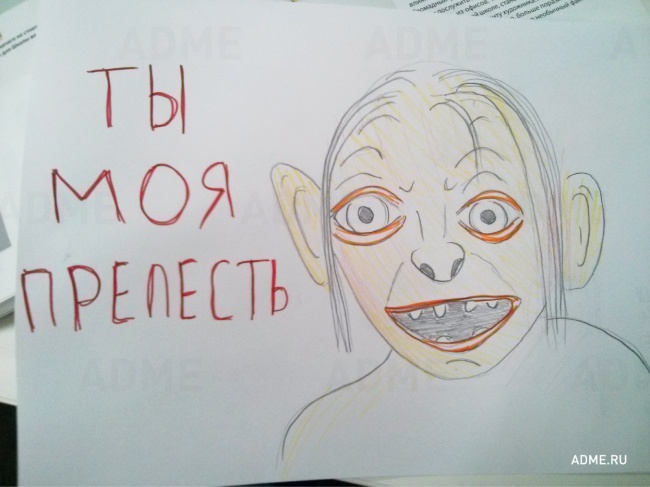 больше
необычный
ADME
ADME
ТЫ
МОЯ
ПРЕЛЕСТЬ
ADME
ADME
ADME
ADME.RU